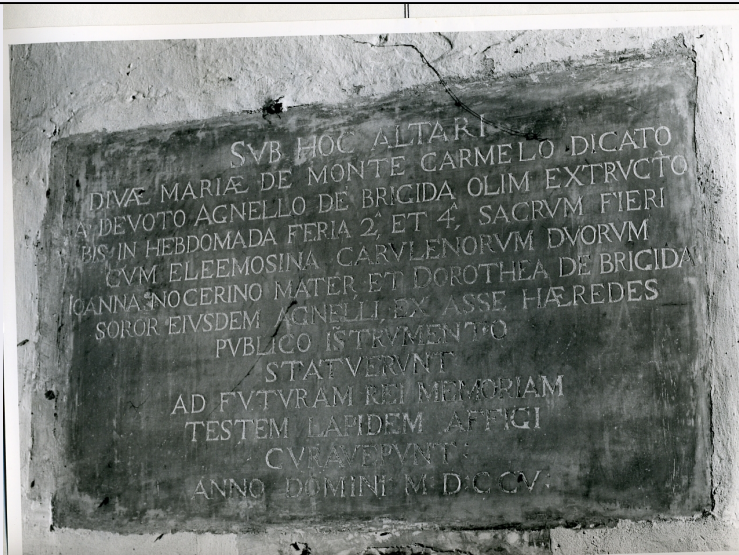 SVB HOC ALTARI
DIVÆ MARIÆ DE MONTE CARMELO DICATO
A DEVOTO AGNELLO DE BRIGIDA OLIM EXTRVCTO
BIS IN HEBDOMADA FERIA 2ª ET 4ª, SACRVM FIERI
CVM ELEEMOSINA CARVLENORVM DVORVM
IOANNA NOCERINO MATER, ET DOROTHEA DE BRIGIDA
SOROR EIVSDEM AGNELLI EX ASSE HÆREDES
PVBLICO ISTRVMENTO
STATVERVNT
AD FVTVRAM REI MEMORIAM
TESTEM LAPIDEM AFFIGI
CVRAVERVNT
ANNO DOMINI M D C C V